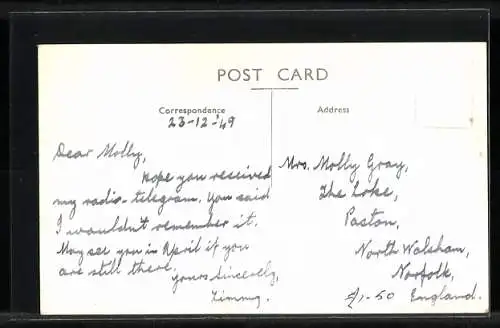 POST CARD
Correspondence
Address
23-12-'49
Dear Molly,
Hope you received
my radio-telegram. You said
I wouldn't remember it.
May see you in April if you
are still there.
Yours Sincerely,
Timmy.
Mrs. Molly Gray,
The Loke,
Paston,
North Walsham,
Norfolk,
England.